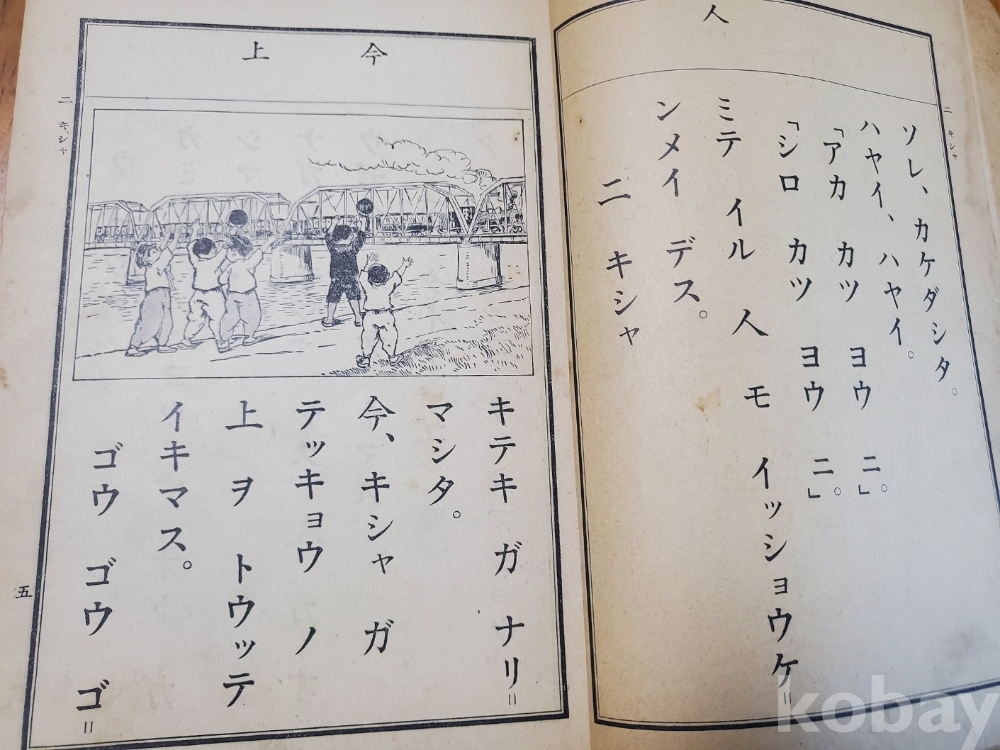 人
二 キシャ
ソレ、カケダシタ。
ハヤイ、ハヤイ。
「アカ カツ ヨウ ニ。」
「シロ カツ ヨウ ニ。」
ミテ イル 人 モ イッショウケ＝
ンメイ デス。
二 キシャ
今 上
キテキ ガ ナリ＝
マシタ。
今、キシャ ガ
テッキョウ ノ
上 ヲ トウッテ
イキマス。
ゴウ ゴウ ゴ＝
二 キシャ
五
kobay